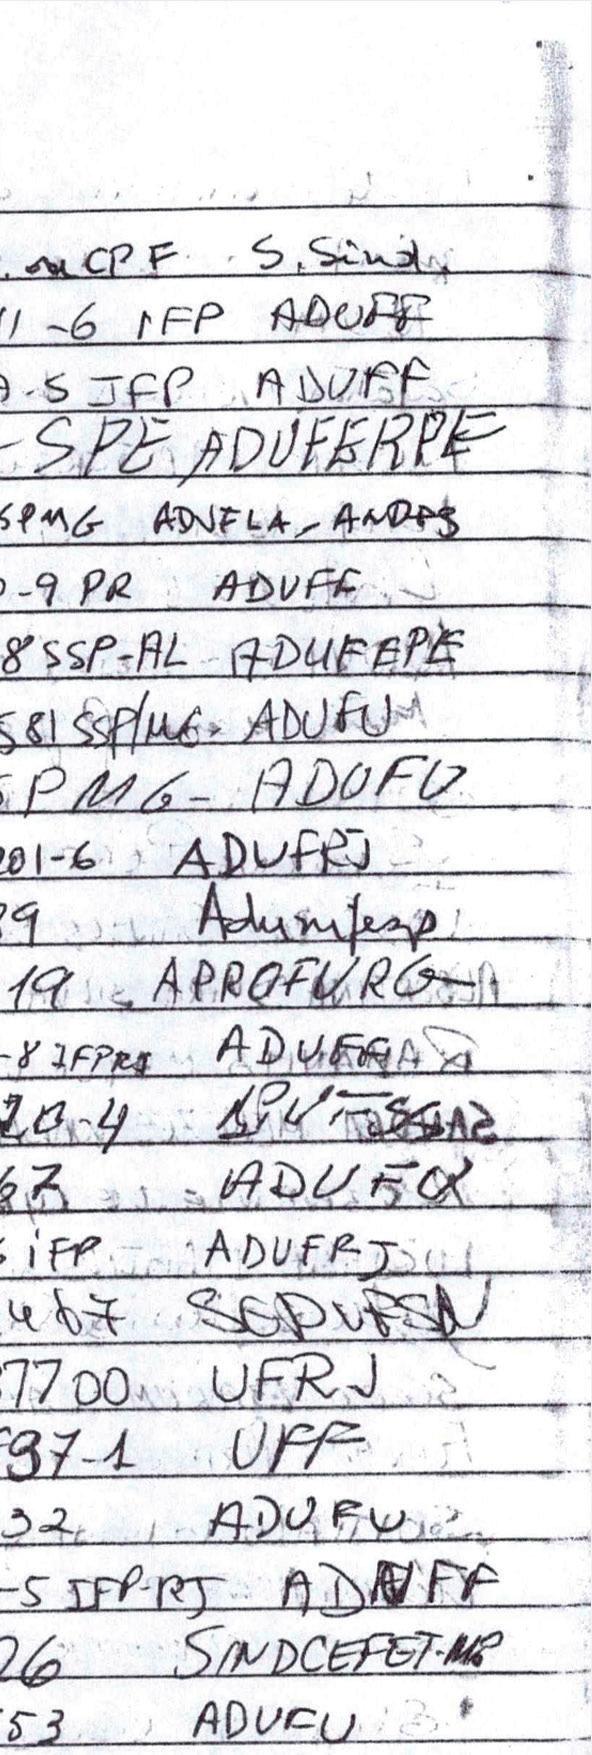 . ou CPF S. Sind.
11-6 IFP ADUFF
9-5 IFP ADUFF
-SPE ADUFERPE
SPMG ADUFLA-ANDES
0-9 PR ADUFF
8 SSP-AL ADUFEPE
581 SSP/MG. ADUFU
SPMG- ADUFU
201-6 ADUFRJ
39 Adunifesp
19 APROFURG-
-8 IFPRJ ADUFF
20-4
67
S IFP ADUFRJ
467
37700 UFRJ
F97-1 UFF
32 ADUFU
-5 IFP-RJ ADUFF
26 SINDCEFET-MG
553 ADUFU